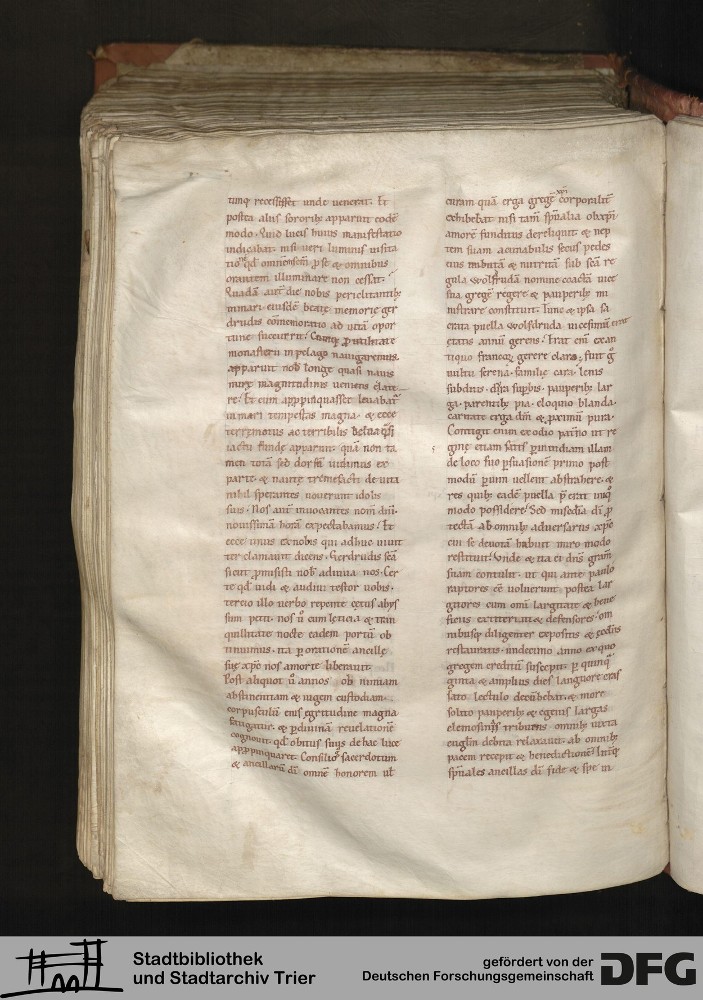 tunq recessisset unde venerat. Et
postea aliis sororib; apparuit eodē
modo. Quid lucis huius manifestatio
indicabat. nisi veri luminis visita
tionē qđ omnem scm̄ p se & omnibus
orantem illuminare non cessat.
Quadā autē die nobis periclitantib;
in mari eiusdē beatę memorię ger
drudis cōmemoratio ad vitā opor
tune succurrit. Cumq; p utilitate
monasterii in pelago navigaremus.
apparuit nob longe quasi navis
mirę magnitudinis veniens
re. Et cum appropinquasset levabat
in mari tempestas magna. & ecce
terremotus ac terribilis belua qsi
iactu fundę apparuit. quā non ta
men totā sed dorsū vidimus ex
parte. & nautę tremefacti de vita
nihil sperantes voverunt idolis
suis. Nos autē invocantes nomē dn̄i.
novissimā horā expectabamus. Et
ecce unus ex nobis qui adhuc vivit
ter clamavit dicens. Gerdrudis scā
sicut pmisisti nob adiuva nos. Cer
te qđ vidi & audivi testor vobis.
tercio illo verbo repente cętus abys
sum petit. nos v̄ cum lęticia & tran
quillitate nocte eadem portū ob
tinuimus. ita p orationē ancillę
suę xpc̄ nos a morte liberavit.
Post aliquot v̄ annos ob nimiam
abstinentiam & iugem custodiam.
corpusculū eius egritudine magna
fatigatur. & p divinā revelationē
cognovit. qđ obitus suus de hac luce
appropinquaret. Consilio sacerdotum
& ancillarū dī omnē honorem vł
curam quā erga gregē xp̄i corporalit̄
exhibebat nisi tam sp̄ualia ob xp̄i
amorē funditus dereliquit. & nep
tem suam ac cunabulis secus pedes
eius nutritā sub scā re
gula Wolfrudā nomine coactā vice
sua gregē regere & pauperib; mi
nistrare constituit. Tunc & ipsa sa
crata puella Wolfdruda vicesimū erat
ętatis annū gerens. Erat enī ex an
tiquo francoꝝ genere clara, fuit q̊
vultu serena. familię cara. lenis
subditis. dist̄cta sup̄bis. pauperib; lar
ga. parentib; pia. eloquio blanda.
caritate erga dm̄ & pximū pura.
Contigit enim ex odio pat̄no ut re
ginę etiam satis p invidiam illam
de loco suo psuasionē primo post
modū p vim vellent abstrahere. &
res quib; eadē puella p̄erat iniq̊
modo possidere. Sed misc̄dia dī p
tecta ab omnib; adversariis xpo
cui se devotā habuit miro modo
restitit. Unde & ita ei dn̄s grām
suam contulit. ut qui ante paulo
raptores eē voluerunt. postea lar
gitores cum omī largitate & bene
ficus extiterint & defensores. om
nibusq; diligenter expositis & scdis
restauratis. undecimo anno ex quo
gregem creditū suscepit. p quinq
ginta & amplius dies languore cras
sato. lectulo decūbebat. & more
solito pauperib; & egenis largas
elemosinas tribuens. omnib; iuxta
evuglm̄ debita relaxavit. ab omnib;
pacem recepit & benedictionē. Inq
sp̄uales ancillas dī fide & spe in
Stadtbibliothek
und Stadtarchiv Trier
gefördert von der
Deutschen Forschungsgemeinschaft
DFG